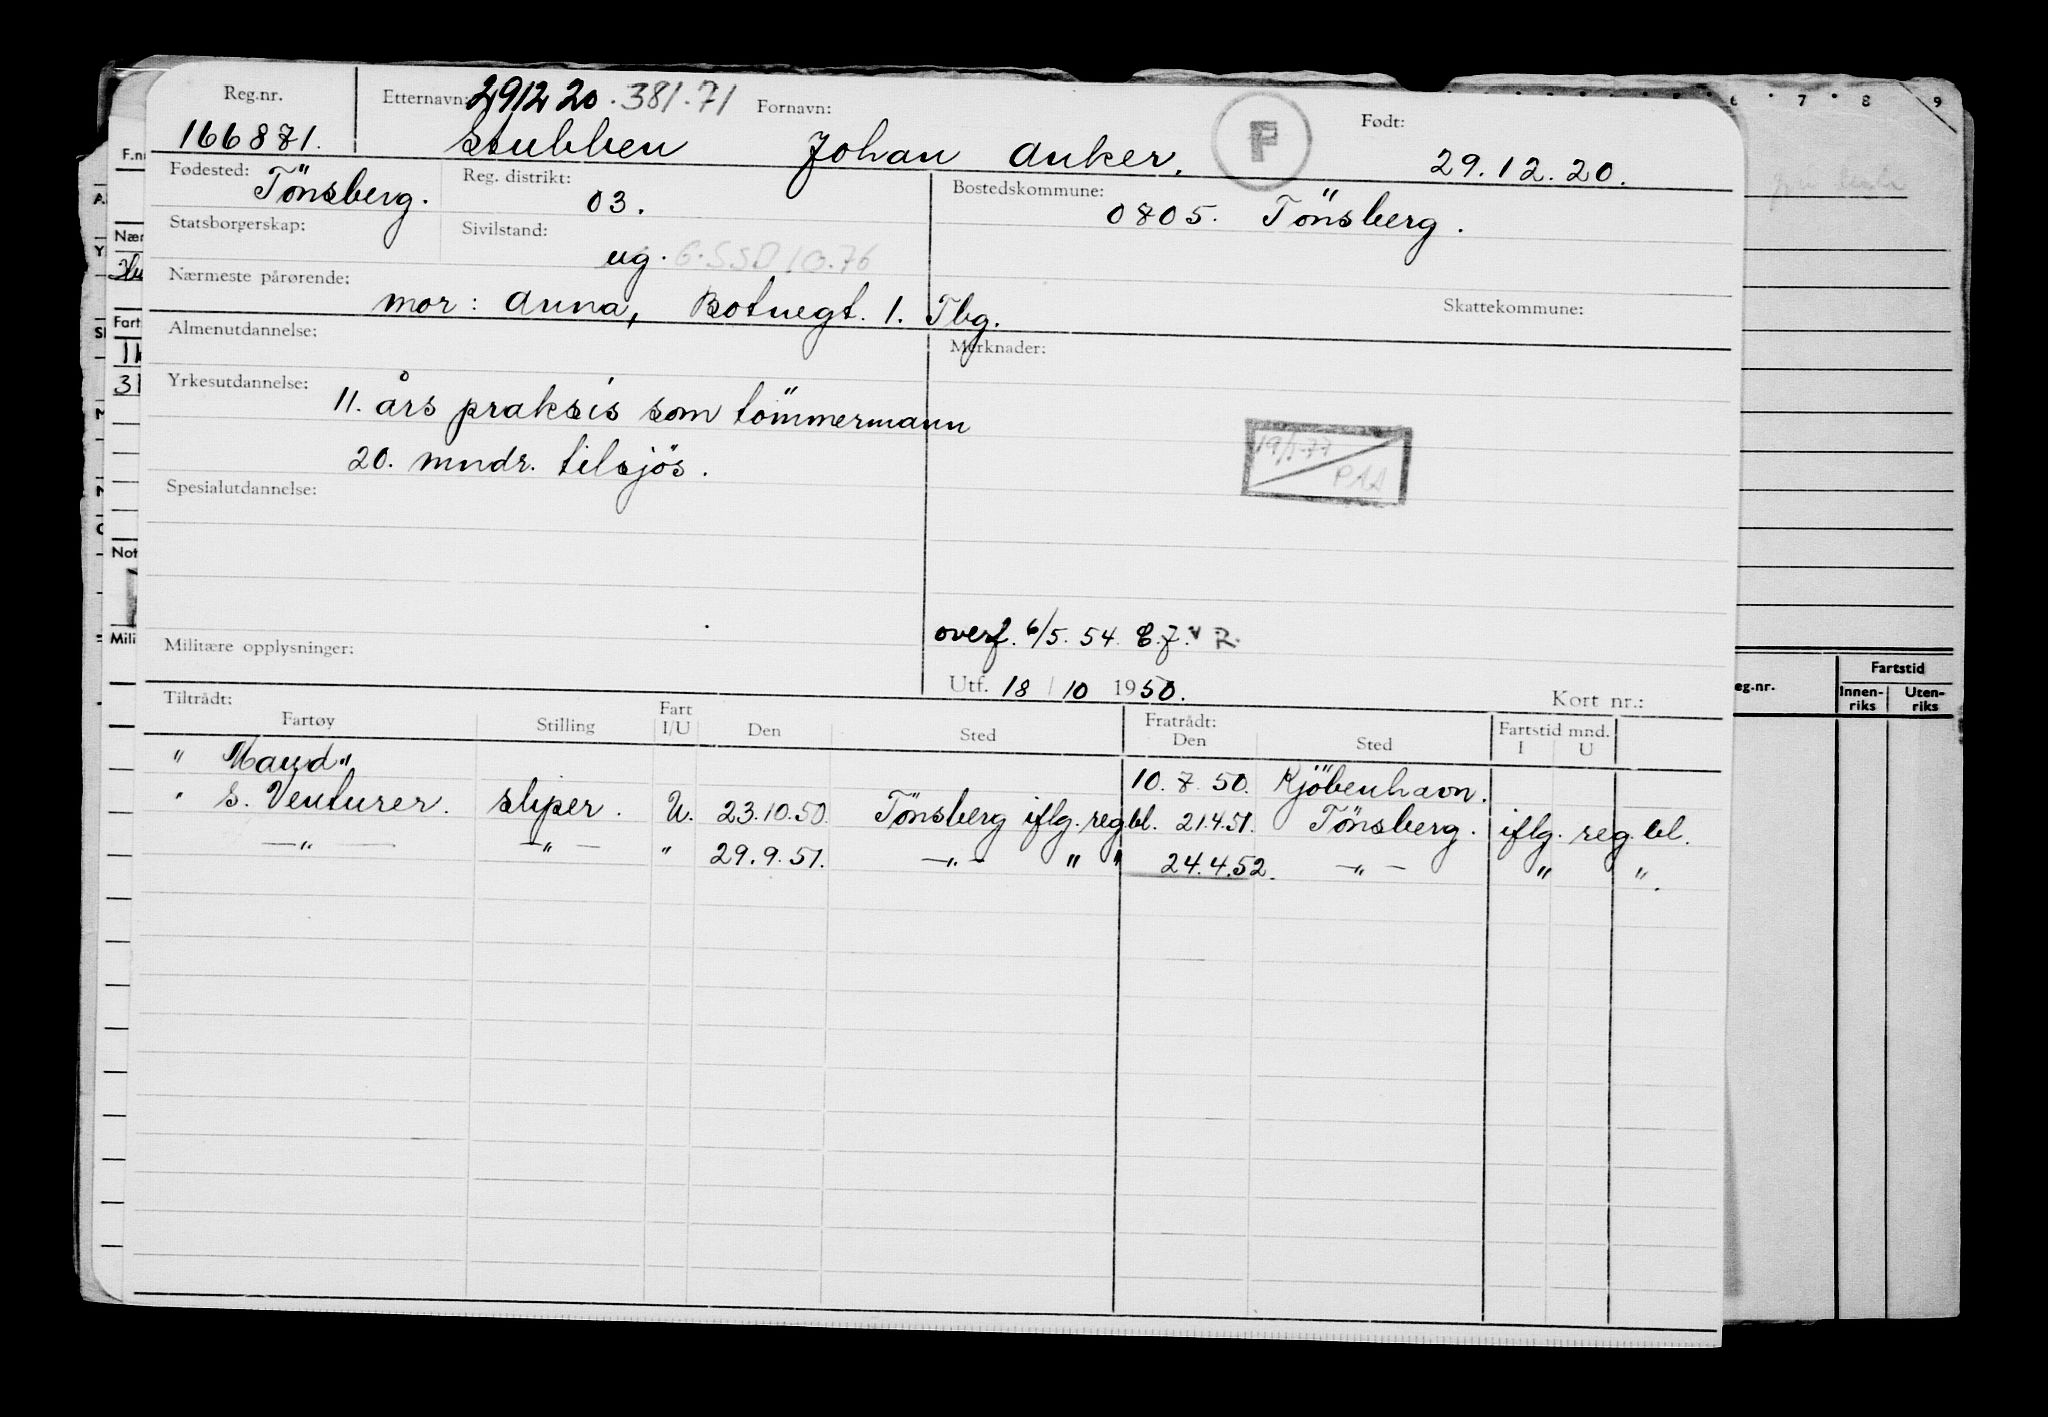 Reg.nr. Etternavn: 291220.381.71 Fornavn: F Født:
166871. Stubben Johan Anker. 29.12.20.
Fødested: Tönsberg. Reg. distrikt: 03. Bostedskommune: 0805. Tönsberg.
Statsborgerskap: Sivilstand: ug. G.SSD10.76
Nærmeste pårørende: mor: Anna, Botnegt. 1. Tbg. Skattekommune:
Almenutdannelse: Merknader:
Yrkesutdannelse: 11. års praksis som tömmermann
20. mndr. tilsjös.
19/1-77 PAA
Spesialutdannelse:
overf. 6/5. 54. E.J. v R.
Militære opplysninger:
Utf. 18 / 10 1950. Kort nr.:
Tiltrådt: Fratrådt:
Fartøy Stilling Fart I/U Den Sted Den Sted Fartstid mnd. I U
" Maud" 10. 7. 50. Kjöbenhavn.
" S. Venturer. sliper. U. 23.10.50. Tönsberg iflg. reg.bl. 21.4.51. Tönsberg. iflg. reg. bl.
—"— —"— " 29.9.51. —"— " " 24.4.52. —"— " ".
F.nr
Nær
Fart
11
31
Not
Mili
6 7 8 9
eg.nr. Fartstid
Innen-riks Uten-riks